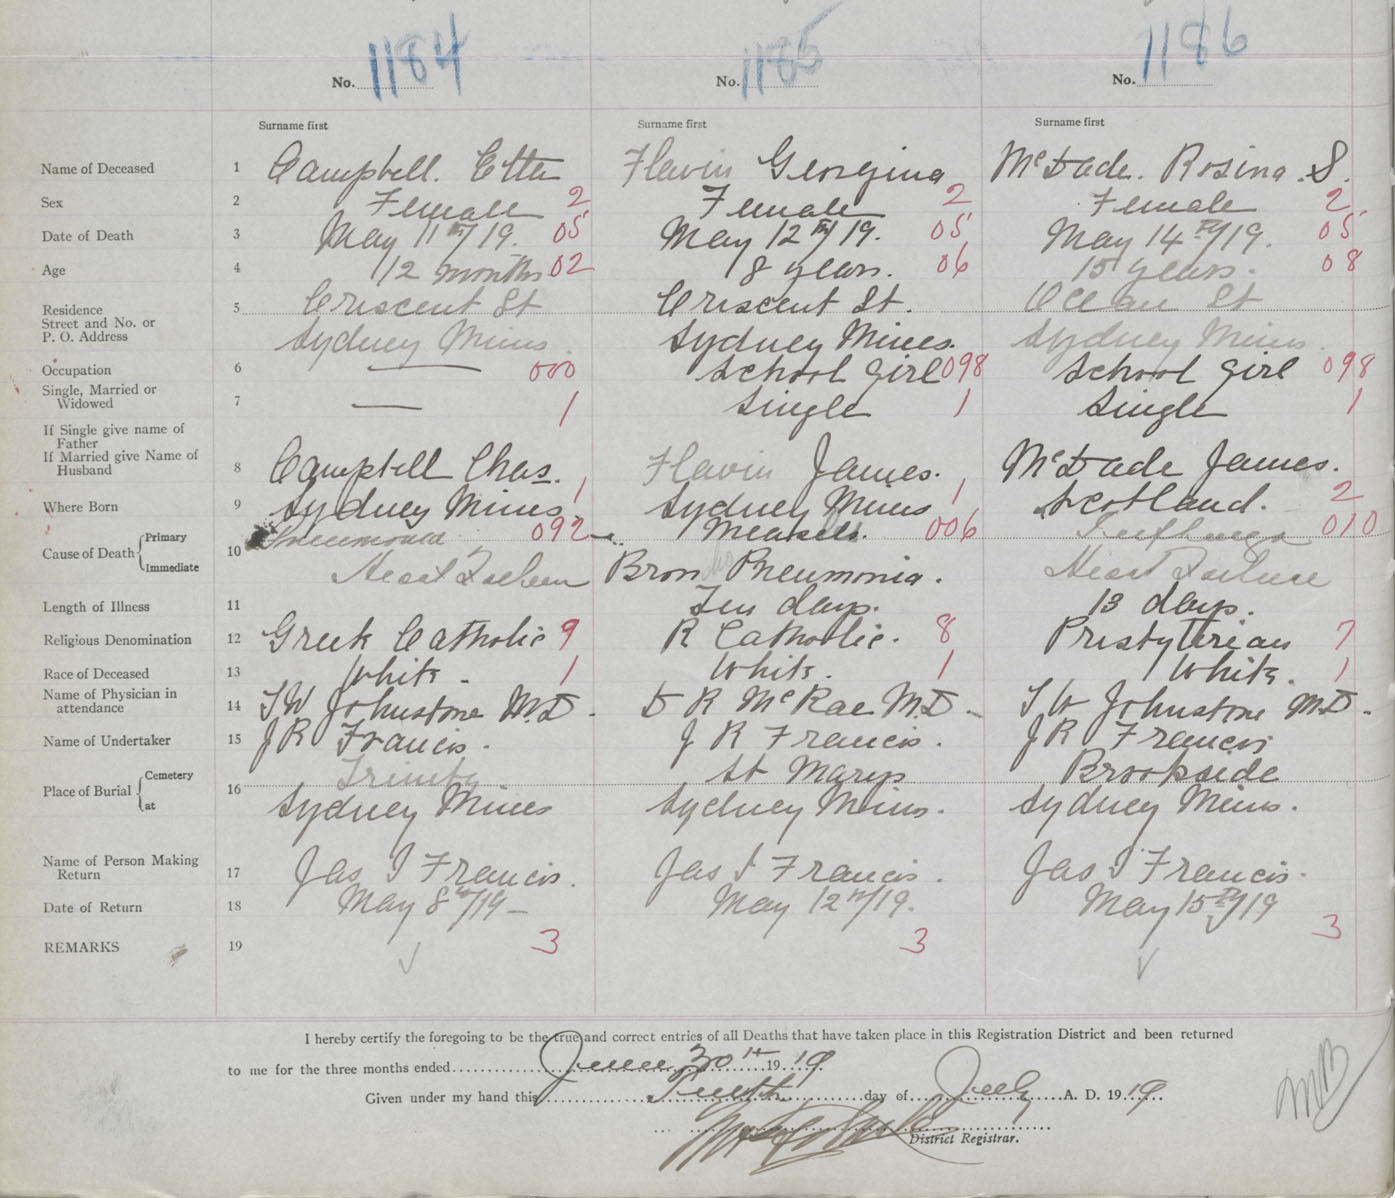 No. 1184 No. 1185 No. 1186
Surname first Surname first Surname first
Name of Deceased 1 Campbell. Etta Flavin Georgina McDade. Rosina. S.
Sex 2 Female 2 Female 2 Female 2
Date of Death 3 May 11th/19. 05 May 12th/19. 05 May 14th/19. 05
Age 4 12 months 02 8 years. 06 15 years. 08
Residence 5 Crescent St Crescent St. Ocean St
Street and No. or
P. O. Address Sydney Mines. Sydney Mines. Sydney Mines.
Occupation 6 — 000 School Girl 098 School Girl 098
Single, Married or
Widowed 7 — 1 Single 1 Single 1
If Single give name of
Father
If Married give Name of
Husband 8 Campbell Chas. Flavin James. McDade James.
Where Born 9 Sydney Mines. 1 Sydney Mines 1 Scotland. 2
Cause of Death Primary 10 Pneumonia 092 Measles. 006 010
Immediate Heart Failure Broncho Pneumonia. Heart Failure
Length of Illness 11 Ten days. 13 days.
Religious Denomination 12 Greek Catholic 9 R Catholic. 8 Presbyterian 7
Race of Deceased 13 White. 1 White. 1 White. 1
Name of Physician in
attendance 14 T W Johnstone M.D. D R McRae M.D. T W Johnstone M.D.
Name of Undertaker 15 J R Francis. J R Francis. J R Francis
Place of Burial Cemetery 16 Trinity St Marys Brookside
at Sydney Mines Sydney Mines. Sydney Mines.
Name of Person Making
Return 17 Jas I Francis. Jas I Francis. Jas I Francis.
Date of Return 18 May 8th/19 May 12th/19. May 15th/19
REMARKS 19 3 3 3
I hereby certify the foregoing to be the true and correct entries of all Deaths that have taken place in this Registration District and been returned
to me for the three months ended June 30th 1919
Given under my hand this Tenth day of July A. D. 1919
District Registrar.